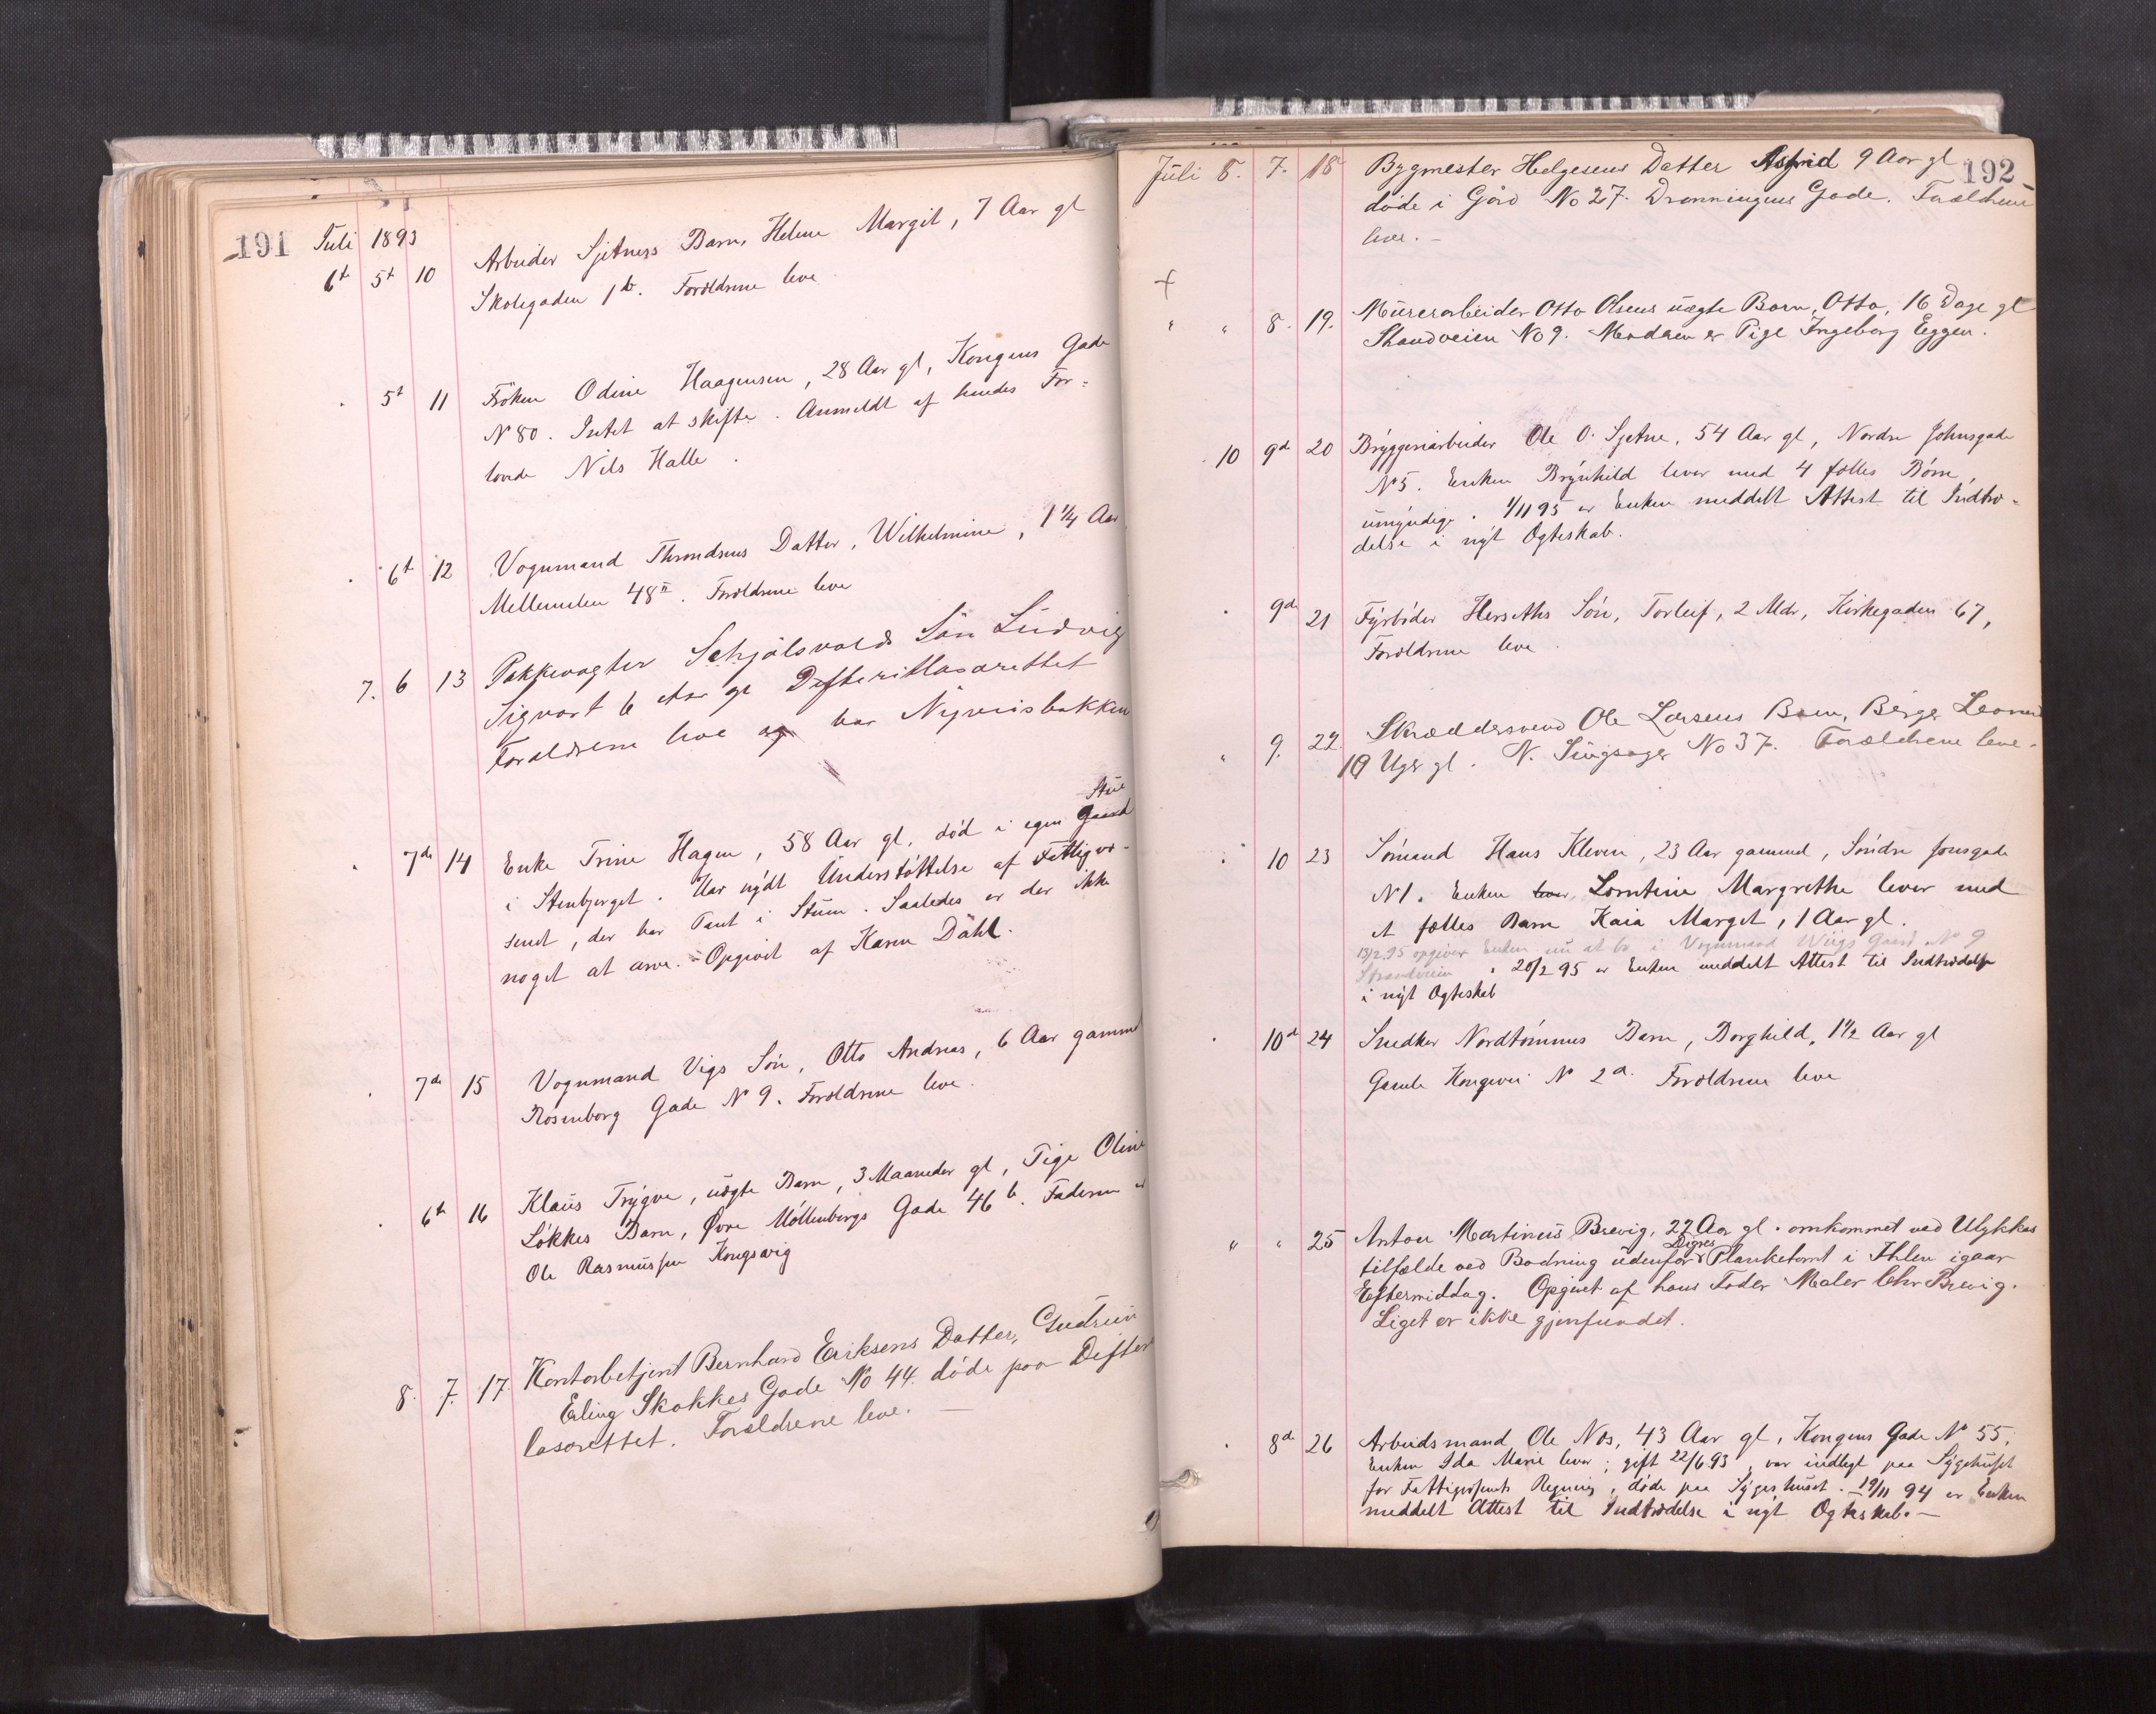 191 Juli 1893
6t 5t 10 Arbeider Sjetness Barn, Helene Margit, 7 Aar gl
Skolegaden 1b. Forældrene leve
5t 11 Fröken Odine Haagensen, 28 Aar gl, Kongens Gade
N 80. Intet at skifte. Anmeldt af hendes For-
lovede Nils Halle.
6t 12 Vognmand Throndsens Datter, Wilhelmine, 1 1/4 Aar
Mellemilen 48 II. Forældrene leve
7. 6 13 Pakkevagter Schjølsvolds Søn Ludvig
Sigvart 6 Aar gl Difteritlasarettet
Forældrene leve og bor Nyveisbakken
Stue
7de 14 Enke Trine Hagen, 58 Aar gl. død i egen Gaard
i Stenbjerget. Har nydt Understøttelse af Fattigvæ-
senet, der har Pant i Stuen. Saaledes er der ikke
noget at arve. - Opgivet af Karen Dahl.
7de 15 Vognmand Vigs Søn, Otto Andreas, 6 Aar gammel
Rosenborg Gade N 9. Forældrene leve.
6te 16 Klaus Trygve, uægte Barn, 3 Maaneder gl, Pige Oline
Løkkes Barn, Øvre Møllenbergs Gade 46 b. Faderen er
Ole Rasmussen Kongsvig
8. 7. 17. Kontorbetjent Bernhard Eriksens Datter, Gudrun
Erling Skakkes Gade No 44. døde paa Difterit
lasarettet. Forældrene leve. —
192
Juli 8. 7. 18 Bygmester Helgesens Datter Astrid 9 Aar gl
døde i Gård No 27. Dronningens Gade. Forældrene
leve. —
+
" " 8. 19. Murerarbeider Otto Olsens uægte Barn, Otto, 16 Dage gl
Strandveien No 9. Moderen er Pige Ingeborg Eggen.
10 9de 20 Bryggeriarbeider Ole O. Sjetne, 54 Aar gl, Nordre Johnsgade
N 5. Enken Brynhild lever med 4 fælles Børn,
umyndige. 1/11 95 er Enken meddelt Attest til Indtræ-
delse i nyt Ægteskab.
9de 21 Fyrbøder Herseths Søn, Torleif, 2 Mdr, Kirkegaden 67,
Forældrene leve.
" 9. 22. Skræddersvend Ole Larsens Barn, Birger Leonard
10 Uger gl. N. Singsager No 37. Forældrene leve.
10 23 Sømand Hans Kleven, 23 Aar gammel, Søndre Jonsgade
N 1. Enken lever, Lorntine Margrethe lever med
et fælles Barn Kaia Marget, 1 Aar gl.
18/2 95 opgiver Enken nu at bo i Vognmand Wiigs Gaard No 9
Strandveien. 20/2 95 er Enken meddelt Attest til Indtrædelse
i nyt Ægteskab
10de 24 Snedker Nordtømmes Barn, Borghild, 1 1/2 Aar gl
Gamle Kongevei N 2a. Forældrene leve
" " 25 Anton Martinus Brevig, 22 Aar gl. omkommet ved Ulykkes
Digres
tilfælde ved Badning udenfor Planketomt i Ihlen igaar
Eftermiddag. Opgivet af hans Fader Maler Chr Brevig.
Liget er ikke gjenfundet.
8de 26 Arbeidsmand Ole Næs, 43 Aar gl, Kongens Gade No 55.
Enken Ida Marie lever; gift 22/6 93, var indlagt paa Sygehuset
for Fattigvæsenets Regning, døde paa Sygehuset. 19/11 94 er Enken
meddelt Attest til Indtrædelse i nyt Ægteskab. —